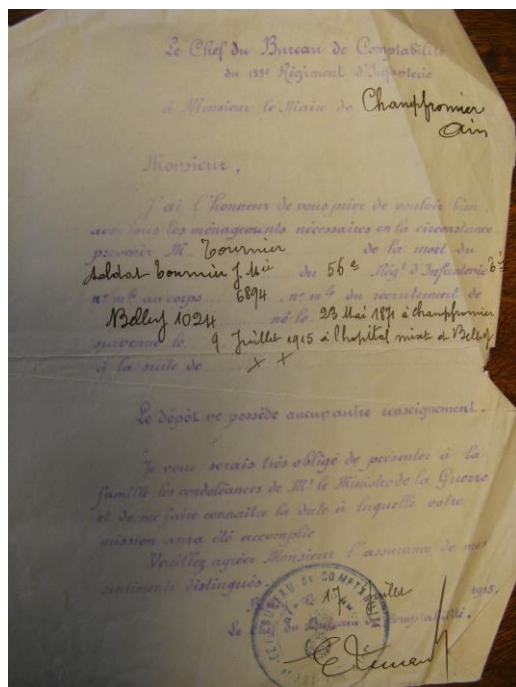 Le Chef du Bureau de Comptabilité
du 133e Régiment d'Infanterie
à Monsieur le Maire de Champfromier
Ain
Monsieur,
J'ai l'honneur de vous prier de vouloir bien
avec tous les ménagements nécessaires en la circonstance
prévenir M. Tournier de la mort du
soldat Tournier J. Mie du 56e Régt d'Infanterie
no mle au corps 6894 no mle du recrutement de
Belley 1024 né le 23 Mai 1871 à champfromier
survenue le 9 Juillet 1915 à l'hopital mixte d Belley
à la suite de x x
Le dépôt ne possède aucun autre renseignement.
Je vous serais très obligé de présenter à la
famille les condoléances de Mr le Ministre de la Guerre
et de me faire connaître la date à laquelle votre
mission aura été accomplie
Veuillez agréer Monsieur l'assurance de mes
sentiments distingués.
17 Juillet 1915.
Le Chef du Bureau de Comptabilité.
BUREAU DE COMPTABILITÉ